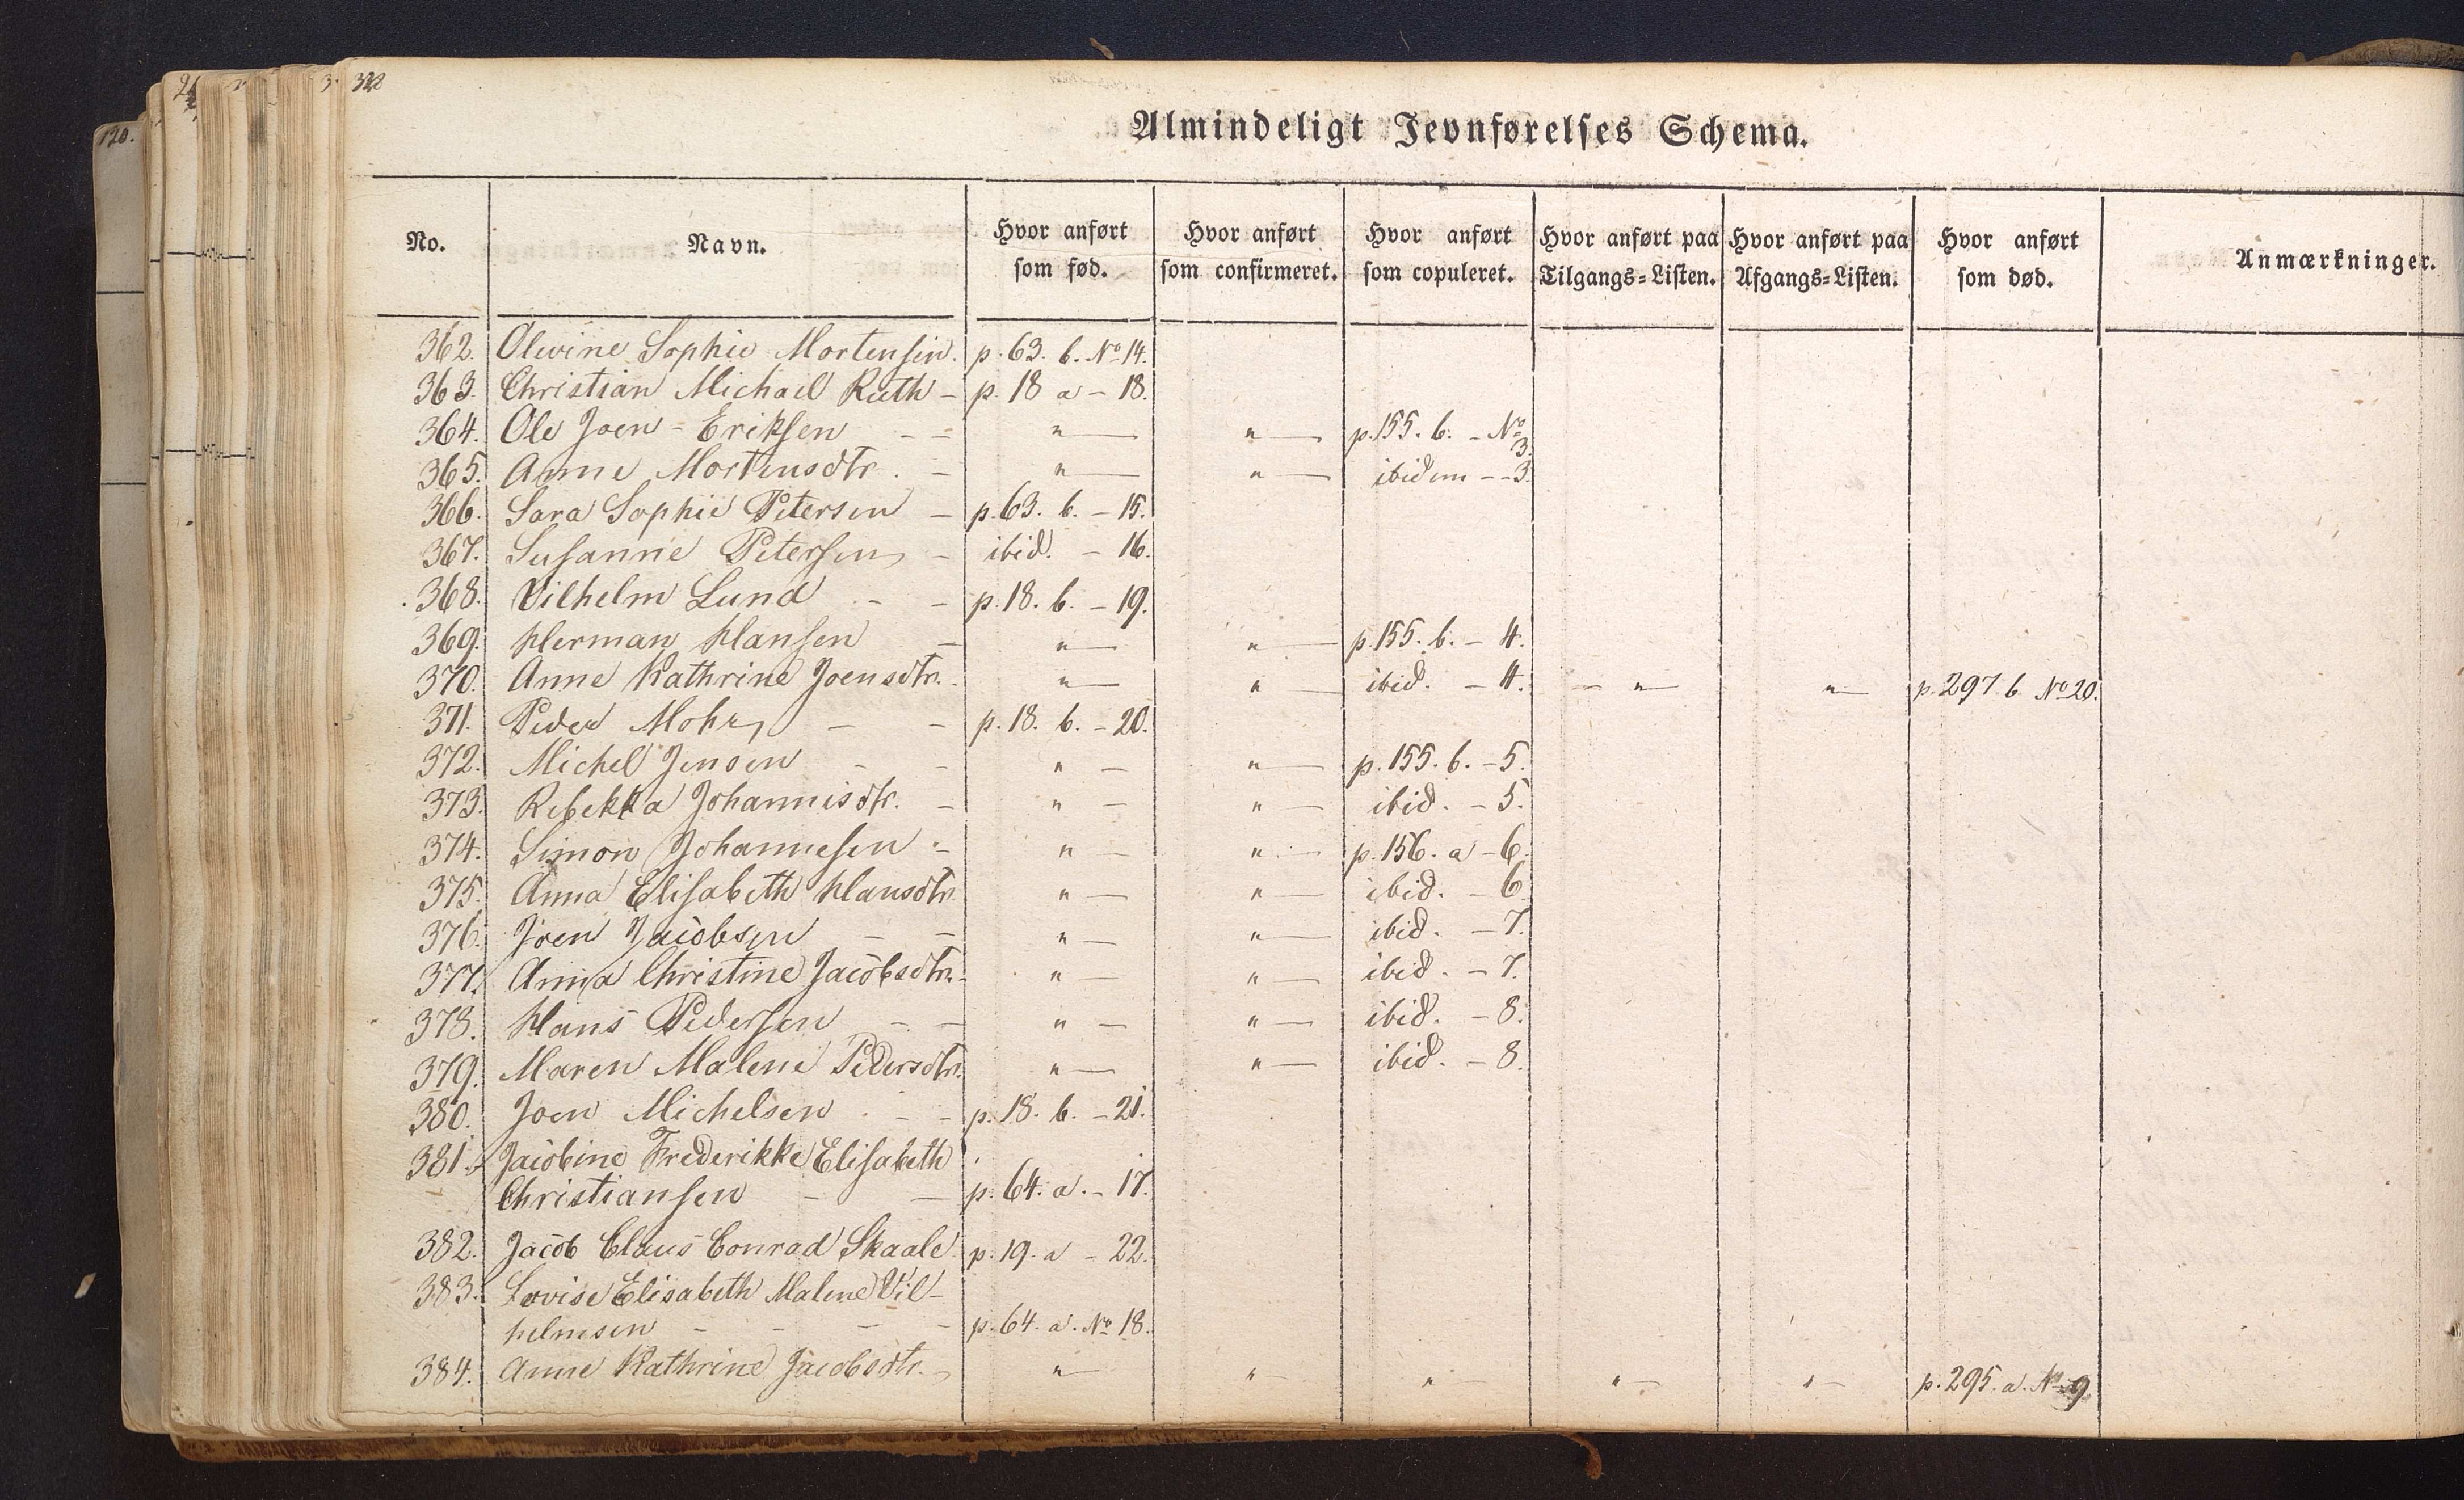 120.
322
Almindeligt Jevnførelses Schema.
No. Navn. Hvor anført som fød. Hvor anført som confirmeret. Hvor anført som copuleret. Hvor anført paa Tilgangs-Listen. Hvor anført paa Afgangs-Listen. Hvor anført som død. Anmærkninger.
362. Olevine Sophie Mortensen. p. 63. b. No 14.
363. Christian Michael Ruth - p. 18 a - 18.
364. Ole Joen - Eriksen - - " — " — p. 155. b. - No 3.
365. Anne Mortensdtr. - " — " — ibidem - - 3.
366. Sara Sophie Petersen - p. 63. b. - 15.
367. Susanne Petersen - ibid. - 16.
368. Vilhelm Lund - - p. 18. b. - 19.
369. Herman Hansen - " — " — p. 155. b. - 4.
370. Anne Kathrine Joensdtr. " — " — ibid. - 4. - " — " — p. 297. b No 20.
371. Peder Mohr - - p. 18. b. - 20.
372. Michel Jensen - - " — " — p. 155. b. - 5.
373. Rebekka Johannisdtr. - " — " — ibid. - 5.
374. Simon Johannesen - " — " — p. 156. a - 6.
375. Anna Elisabeth Hansdtr. " — " — ibid. - 6.
376. Joen Jacobsen - - " — " — ibid. - 7.
377. Anna Christine Jacobsdtr. - " — " — ibid. - 7.
378. Hans Pedersen - - " — " — ibid. - 8.
379. Maren Malene Pedersdtr. " — " — ibid. - 8.
380. Joen Michelsen - - p. 18. b. - 21.
381. Jacobine Frederikke Elisabeth
Christiansen - - p. 64. a. - 17.
382. Jacob Claus Conrad Skaale p. 19. a - 22.
383. Lovise Elisabeth Malene Vil-
helmsen - - - - p. 64. a. No 18.
384. Anne Kathrine Jacobsdtr. - " — " — " — " — " — p. 295. a. No 9